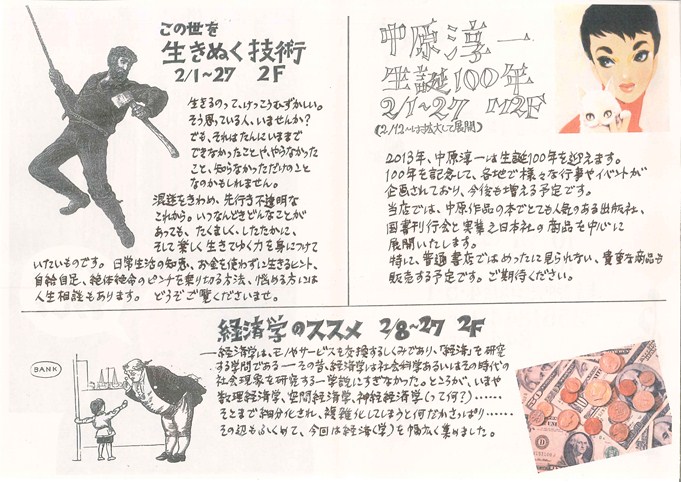 この世を
生きぬく技術
2/1~27 2F
生きるのって、けっこうむずかしい。
そう思っている人、いませんか?
でも、それはたんにいままで
できなかったことや、やらなかった
こと、知らなかっただけのこと
なのかもしれません。
混迷をきわめ、先行き不透明な
これから。いつなんどきどんなことが
あっても、たくましく、したたかに、
そして楽しく生きてゆく力を身につけて
いたいものです。日常生活の知恵、お金を使わずに生きるヒント、
自給自足、絶体絶命のピンチを乗り切る方法、悩める方には
人生相談もあります。どうぞご覧くださいませ。
中原淳一
生誕100年
2/1~27 M2F
(2/12~は拡大して展開)
2013年、中原淳一は生誕100年を迎えます。
100年を記念して、各地で様々な行事やイベントが
企画されており、今後も増える予定です。
当店では、中原作品の本でとても人気のある出版社、
国書刊行会と実業之日本社の商品を中心に
展開いたします。
特に、普通書店ではめったに見られない、貴重な商品も
販売する予定です。ご期待ください。
経済学のススメ 2/8~27 2F
―経済学は、モノやサービスを交換するしくみであり、「経済」を研究
する学問である―その昔、経済学は社会科学あるいはその時代の
社会現象を研究する一学説にすぎなかった。ところが、いまや
数理経済学、空間経済学、神経経済学(って何?)……
そこまで細分化され、複雑化してしまうと何だかさっぱり……
その辺もふくめて、今回は経済(学)を幅広く集めました。
BANK